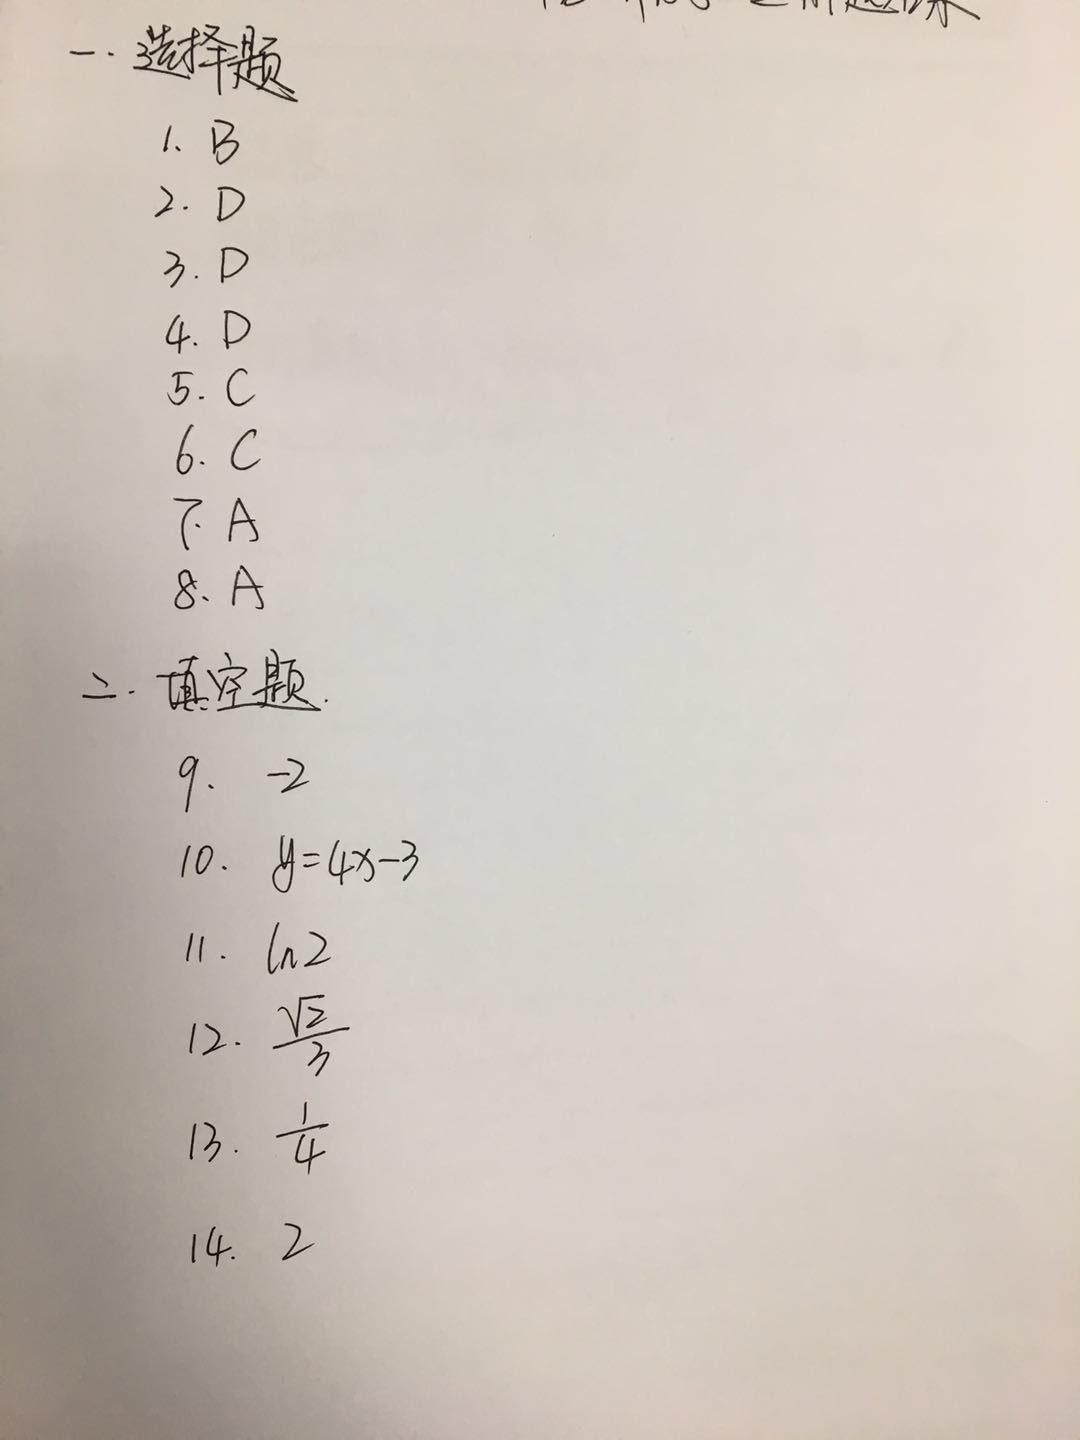 一. 选择题
1. B
2. D
3. D
4. D
5. C
6. C
7. A
8. A
二. 填空题.
9. -2
10. y=4x-3
11. ln2
12. √2/3
13. 1/4
14. 2